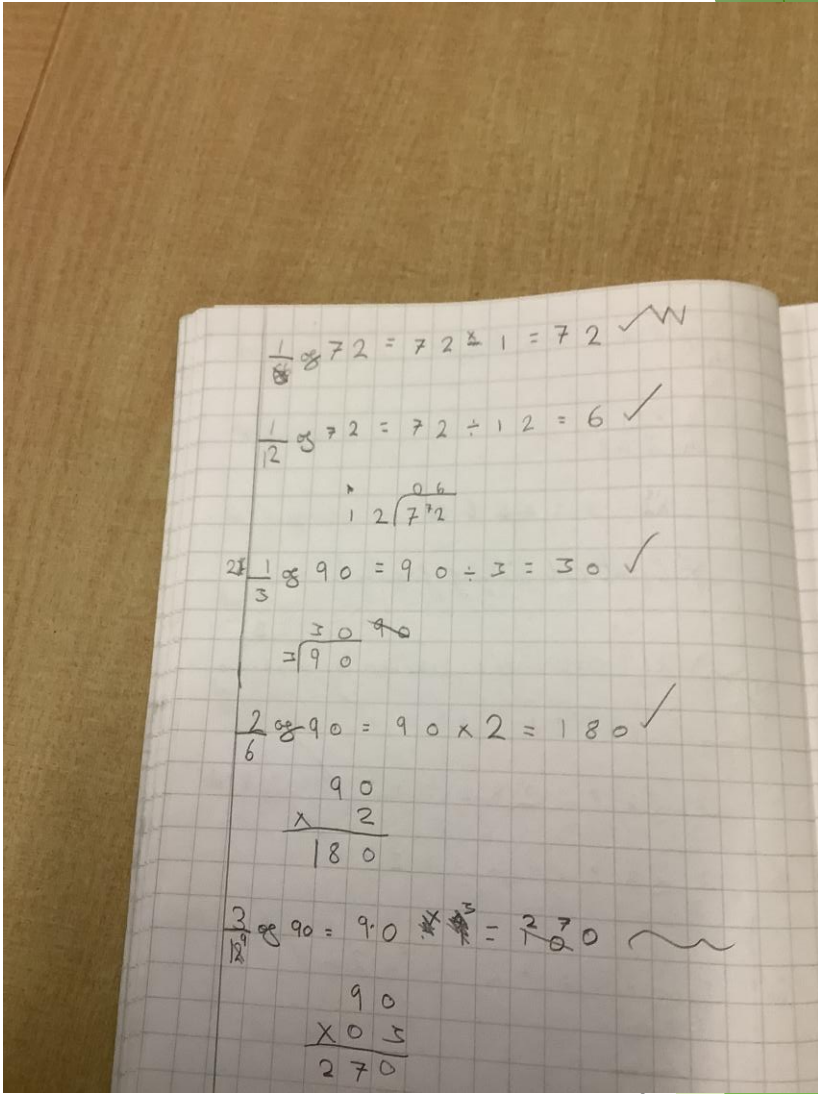 1/6 of 72 = 72 × 1 = 72
1/12 of 72 = 72 ÷ 12 = 6 ✓
06
12 7 ⁷2
2 1/3 of 90 = 90 ÷ 3 = 30 ✓
30 90
3 90
2/6 of 90 = 90 × 2 = 180 ✓
90
× 2
180
3/9 of 90 = 90 × 3 = 270
90
×03
270